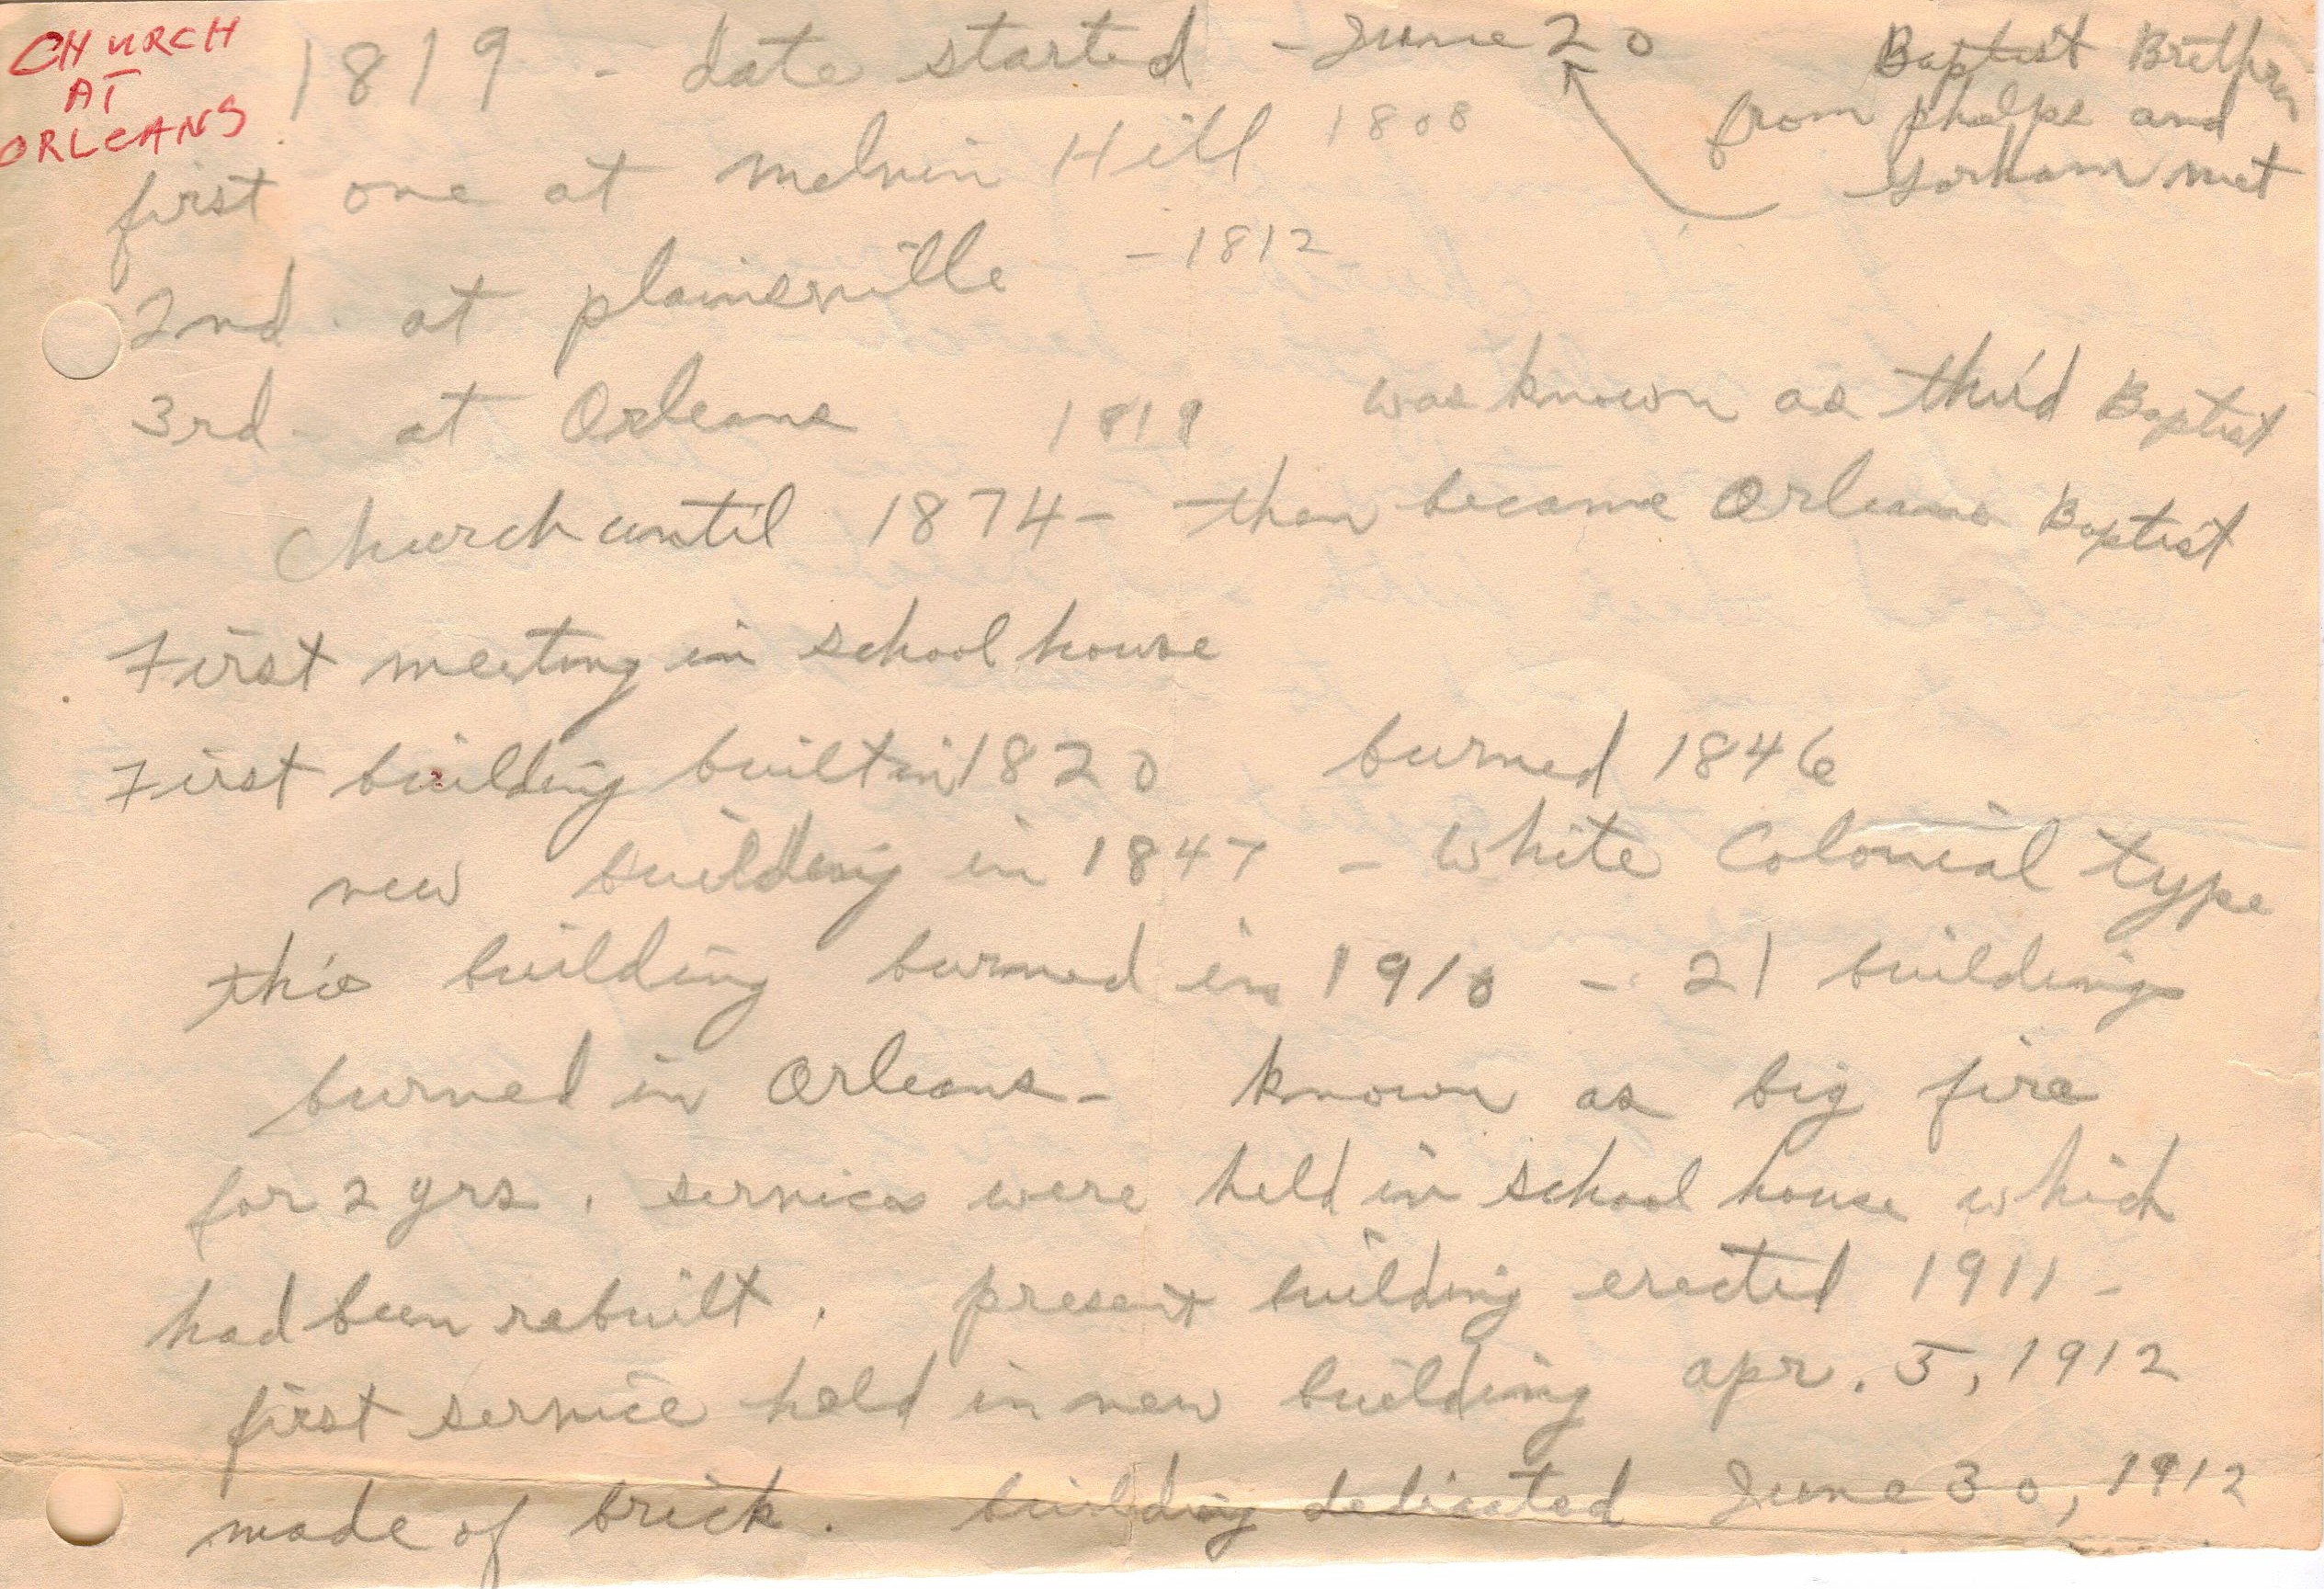 CHURCH
AT
ORLEANS
1819 - date started - June 20
Baptist Brethren
from phelps and
Gorham met
first one at melvin Hill 1808
2nd. at plainsville - 1812
3rd - at Orleans 1819 was known as third Baptist
Church until 1874 - then became Orleans Baptist
First meeting in school house
First building built in 1820 burned 1846
new building in 1847 - White Colonial type
this building burned in 1910 - 21 buildings
burned in Orleans - known as big fire
for 2 yrs. services were held in school house which
had been rebuilt. present building erected 1911 -
first service held in new building apr. 5, 1912
made of brick. building dedicated June 30, 1912